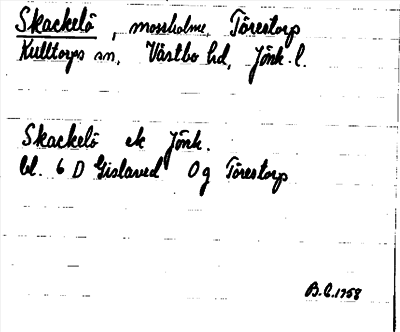 Skackelö, mossholme, Törestorp
Kulltorps sn, Västbo hd, Jönk. l.
Skackelö ek Jönk.
bl. 6 D Gislaved 0 g Törestorp
B.E. 1958